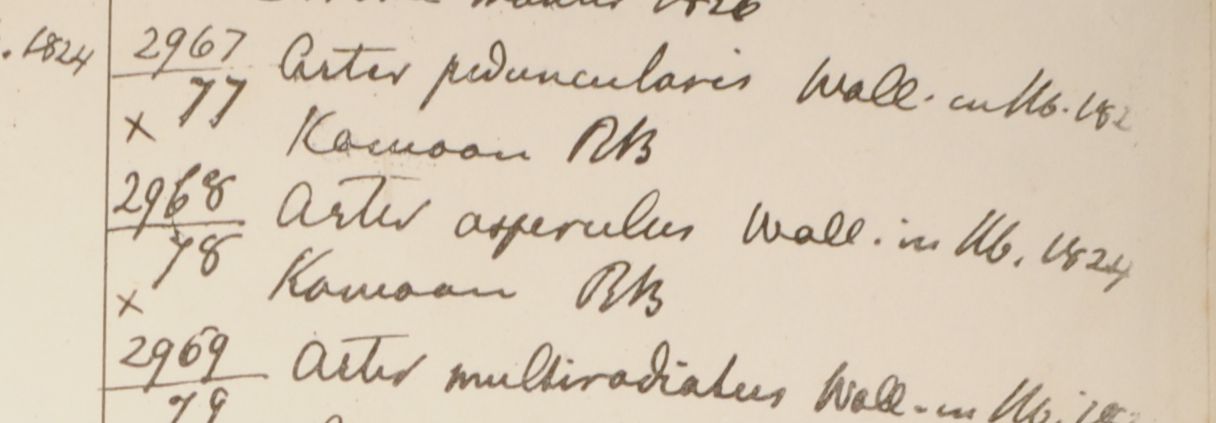 1826
. 1824
2967 Aster peduncularis Wall. in Hb. 182
77
x Kamoan RB
2968 Aster asperulus Wall. in Hb. 1824
78
x Kamoan RB
2969 Aster multiradiatus Wall. in Hb. 182
79